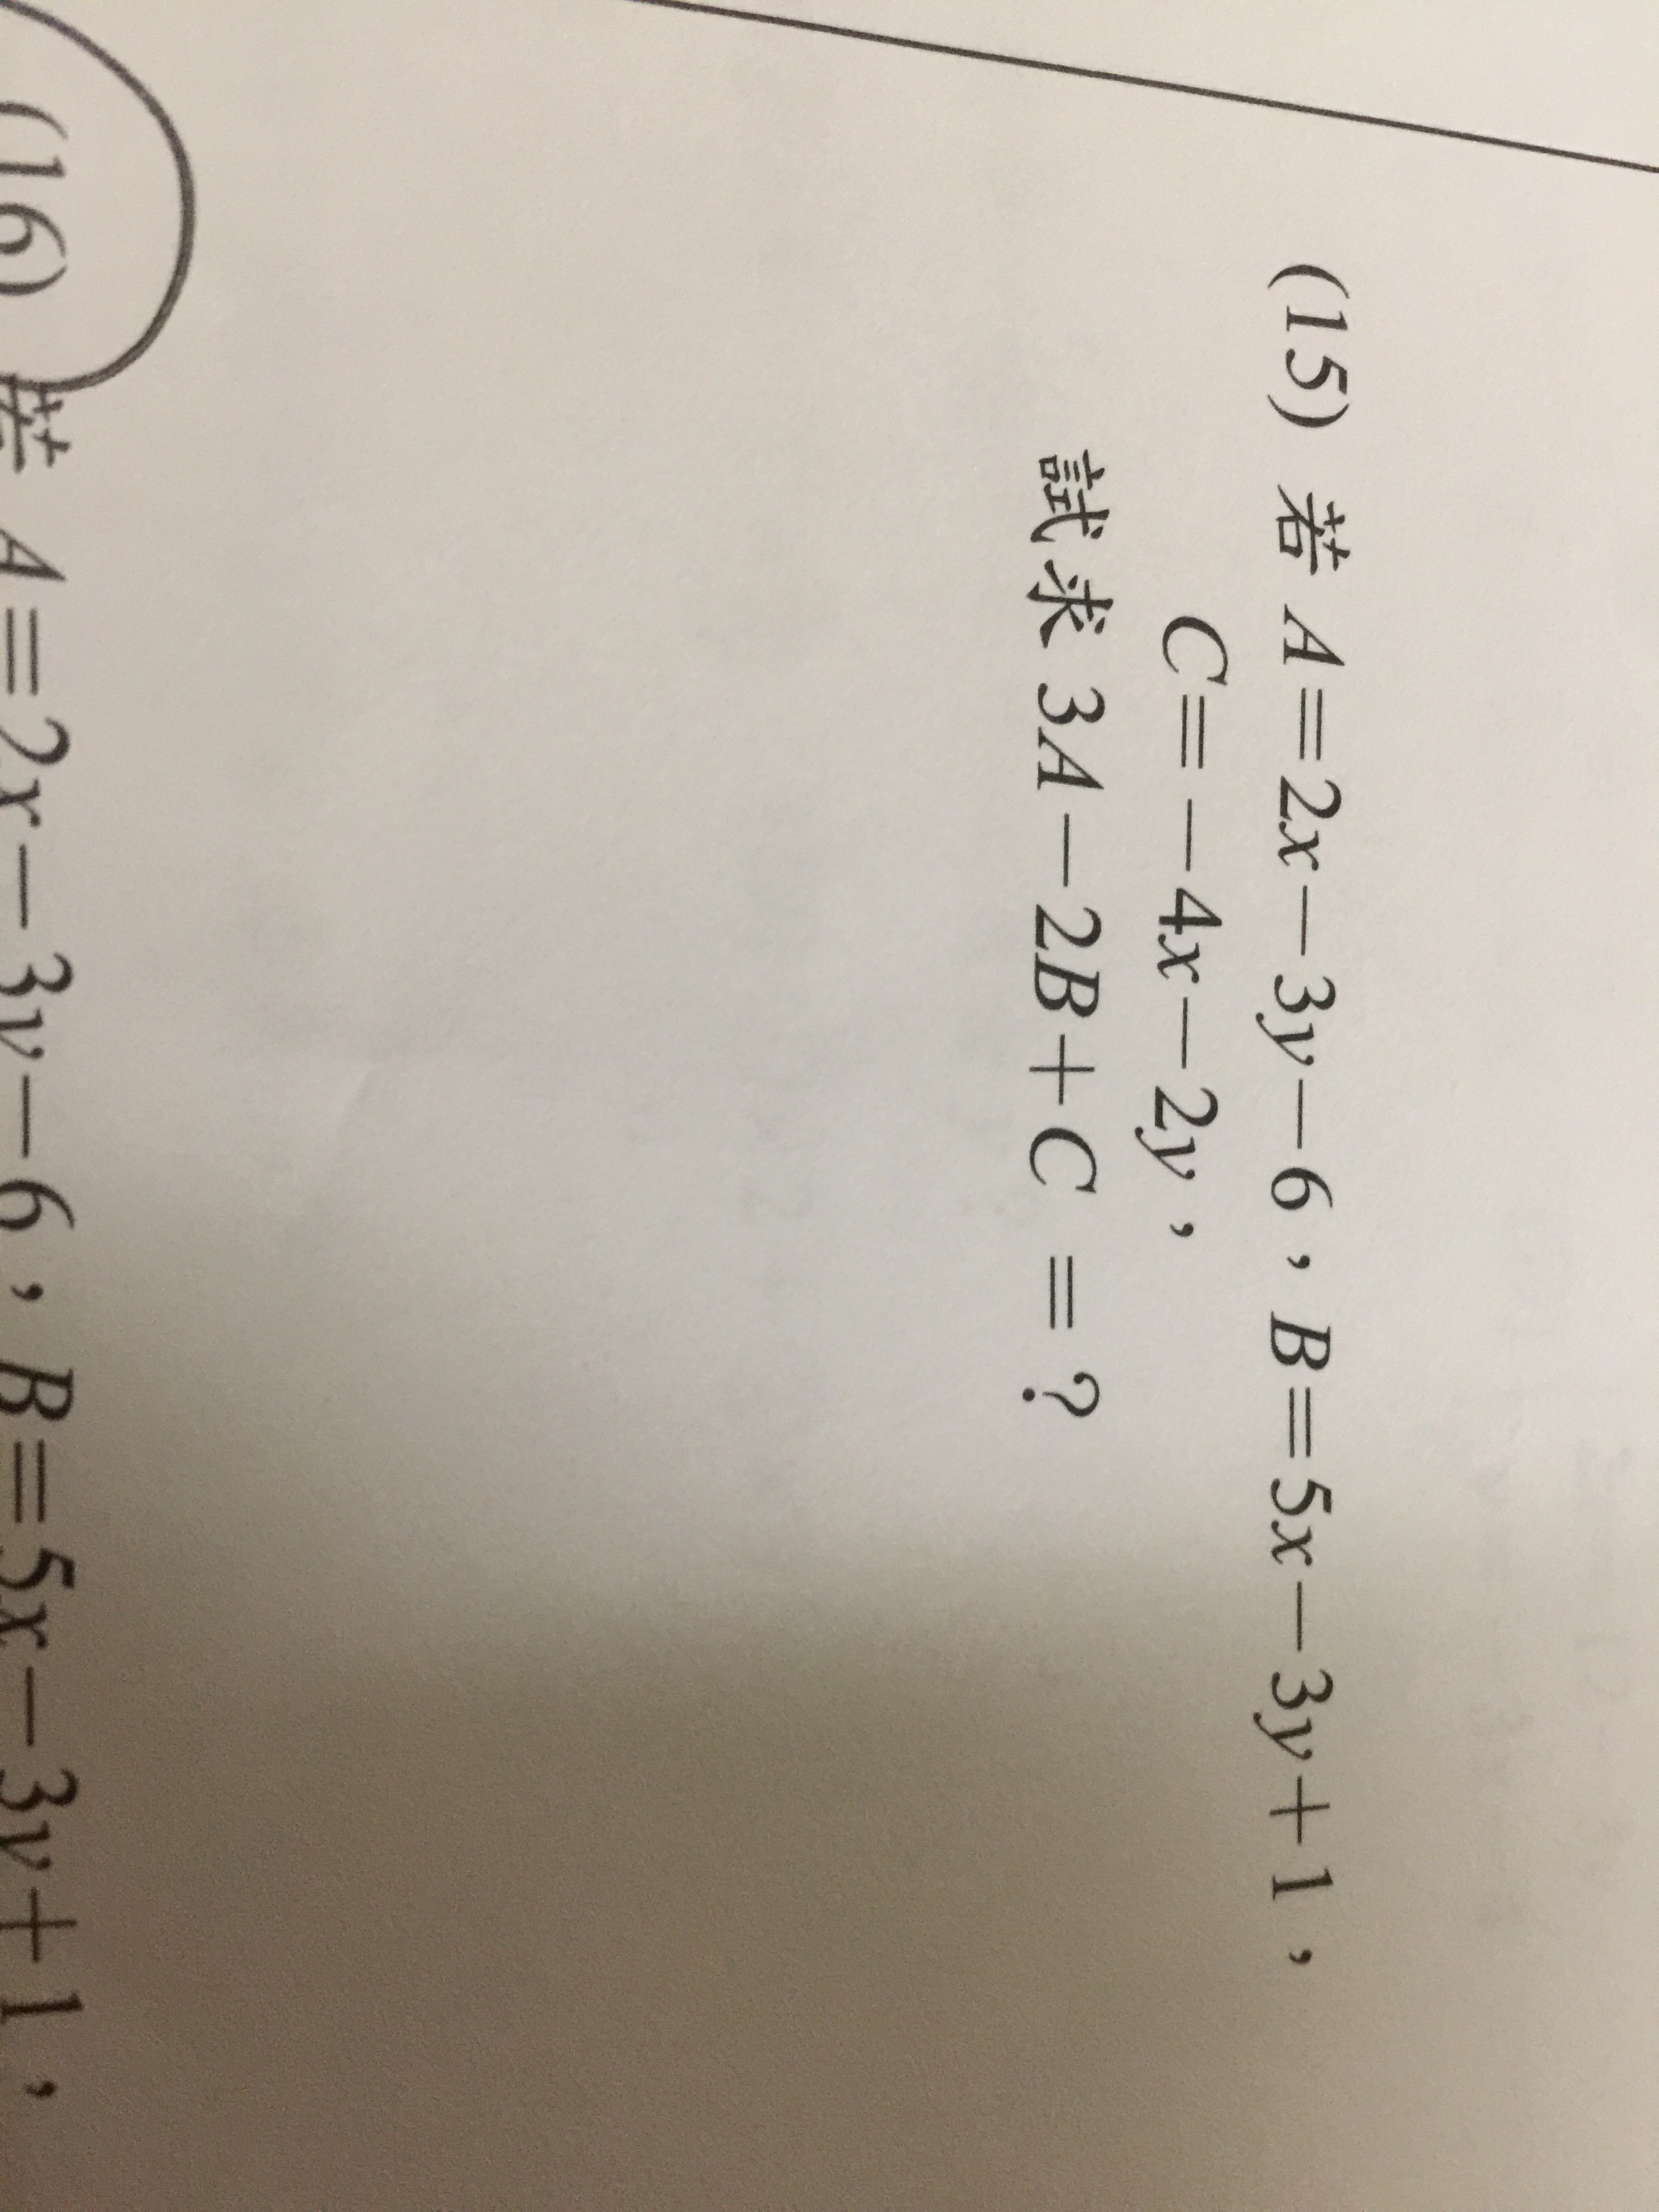 (15) 若 A=2x-3y-6，B=5x-3y+1，
C=-4x-2y，
試求 3A-2B+C =？
(16) 若 A=2x-3y-6，B=5x-3y+1，